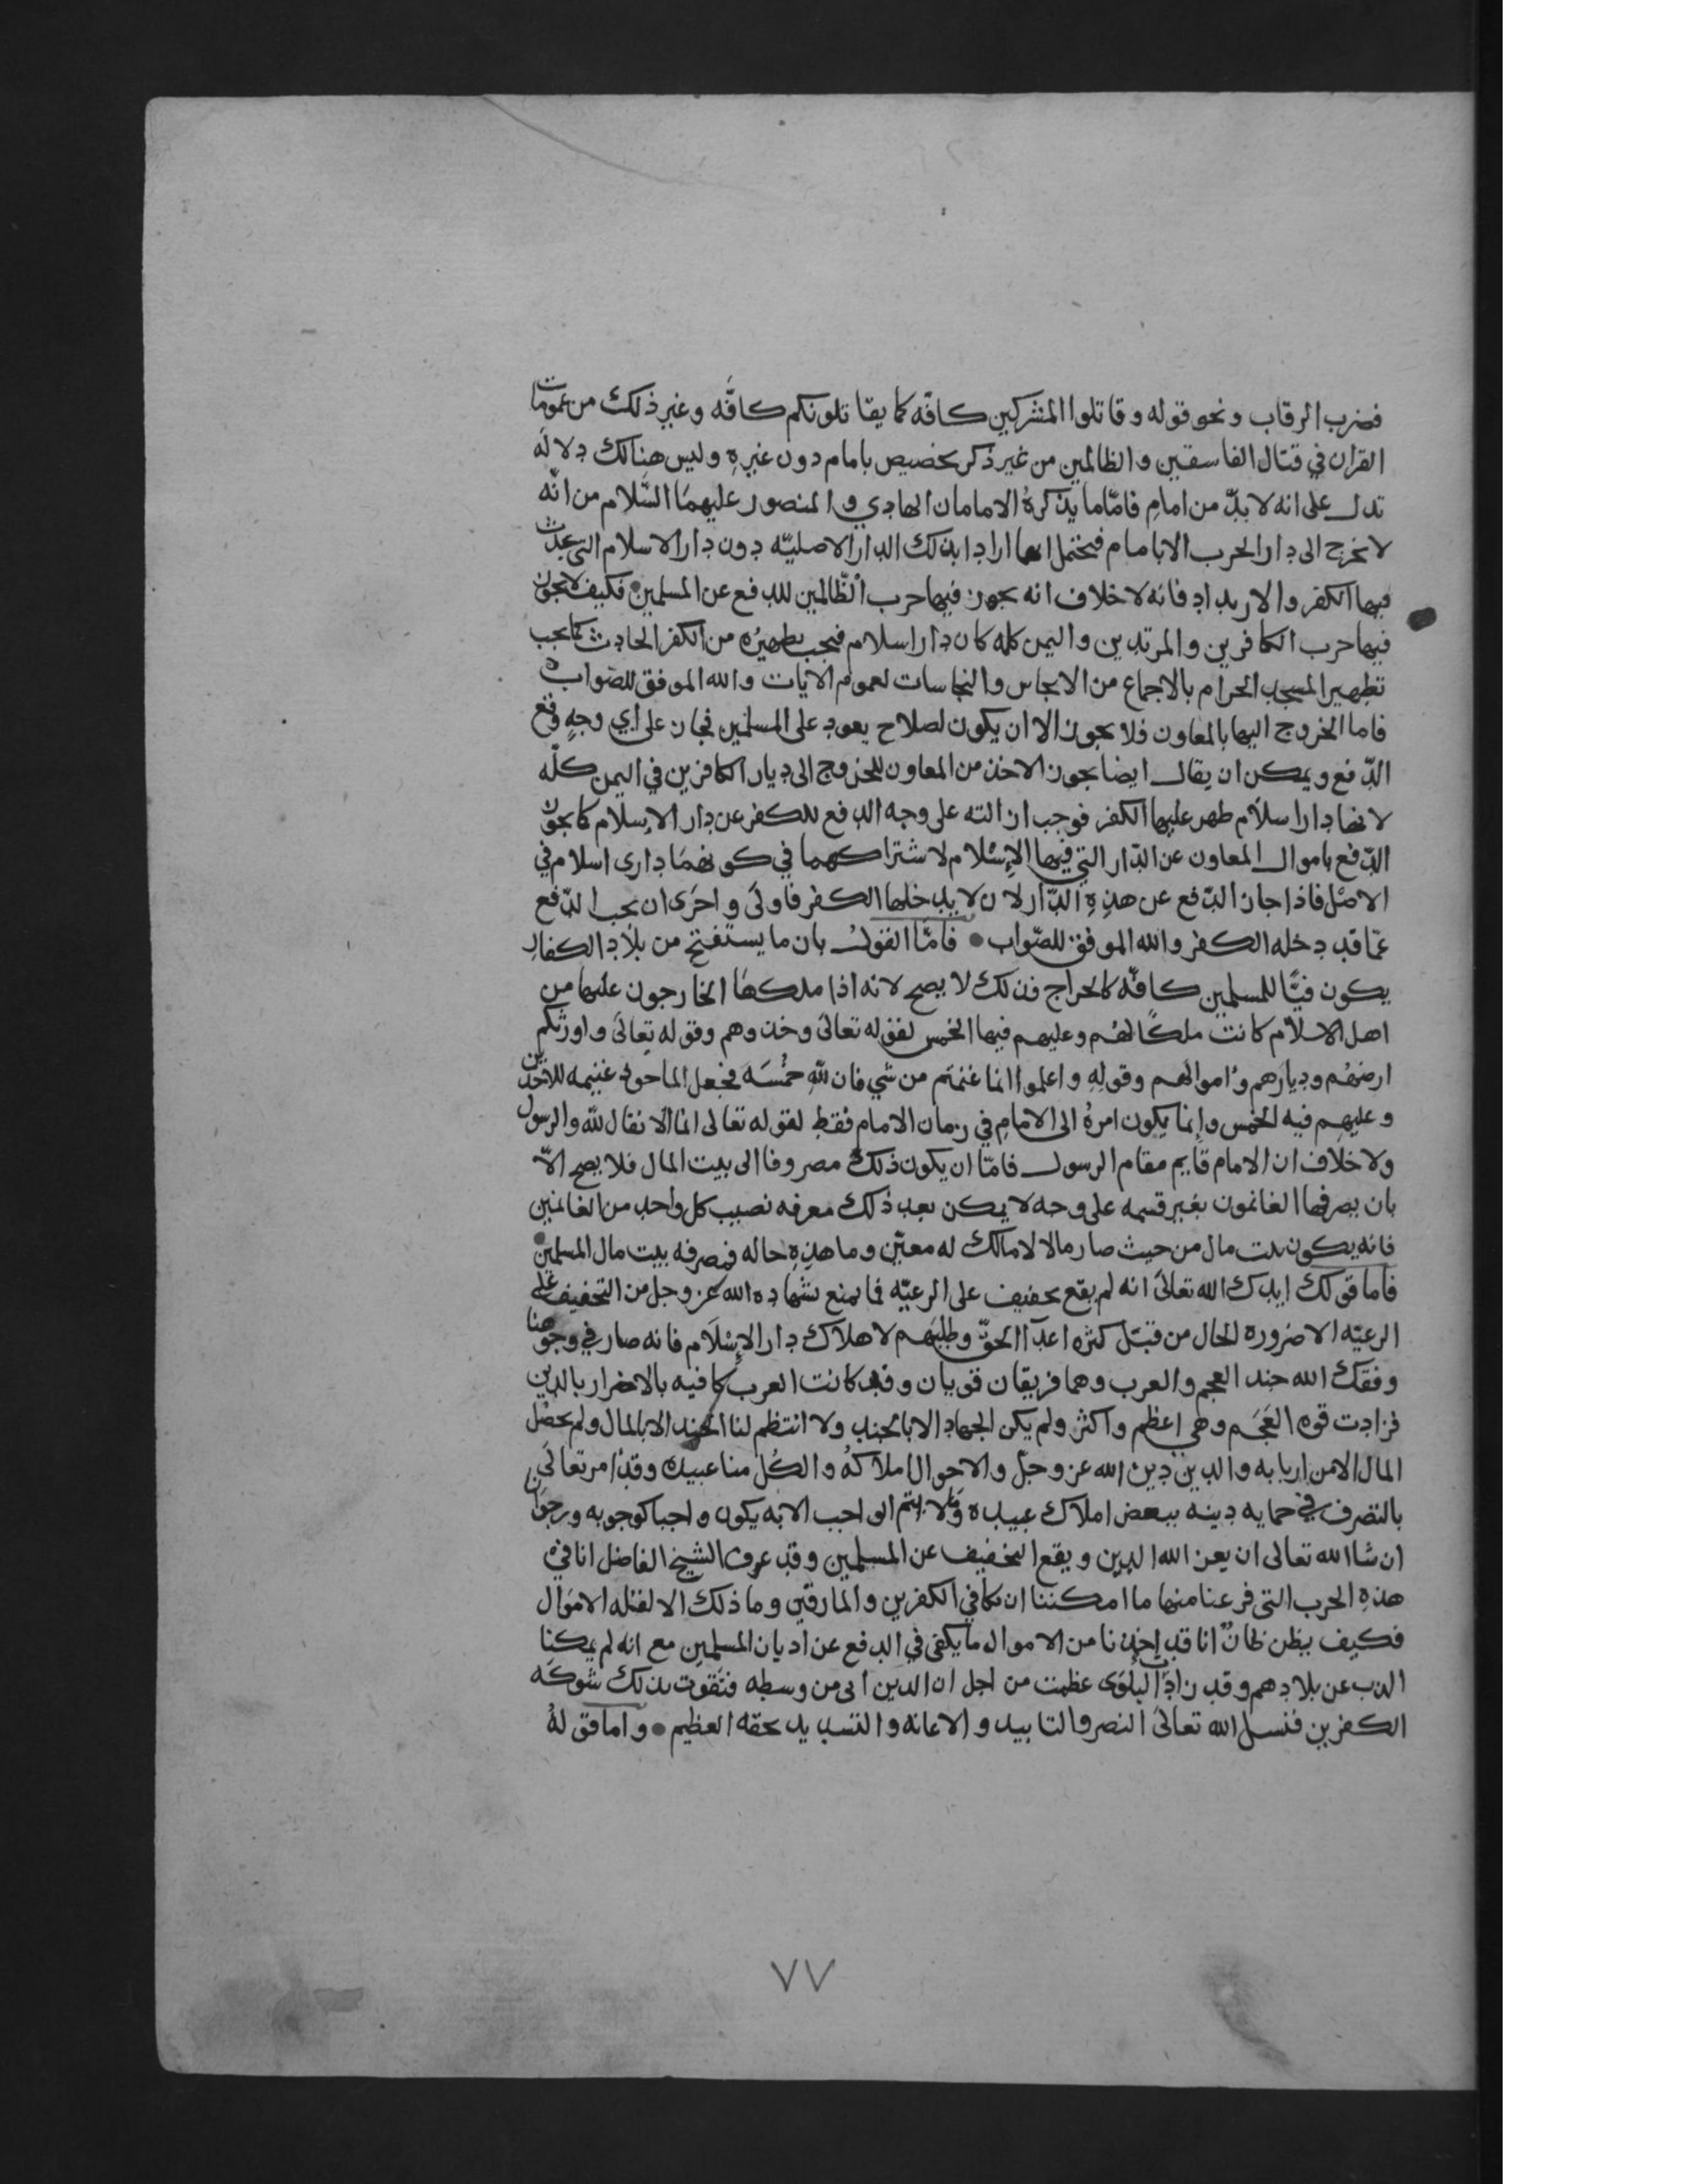 فضرب الرقاب ونحو قوله وقاتلوا المشركين كافّه كما يقاتلونكم كافّه وغير ذلك من عمومات
القران في قتال الفاسقين والظالمين من غير ذكر تخصيص بامام دون غيره وليس هنالك دلاله
تدل على انه لا بدّ من امامٍ فامّا ما يذكره الامامان الهادي والمنصور عليهما السّلام من انّه
لا يخرج الى دار الحرب الا بامام فيحتمل انهما ارادا بذلك الدار الاصليّه دون دار الاسلام التي حدث
فيها الكفر والارتداد فانه لا خلاف انه يجوز فيها حرب الظّالمين للدفع عن المسلمين فكيف لا يجوز
فيها حرب الكافرين والمرتدين واليمن كله كان دار اسلام فيجب تطهيره من الكفر الحادث كما يجب
تطهير المسجد الحرام بالاجماع من الانجاس والنجاسات لعموم الايات والله الموفق للصّواب ه
فاما الخروج اليها بالمعاون فلا يجوز الا ان يكون لصلاح يعود على المسلمين فجاز على اي وجهٍ وقع
الدّفع ويمكن ان يقال ايضا يجوز الاخذ من المعاون للخروج الى ديار الكافرين في اليمن كلّه
لانها دار اسلام ظهر عليها الكفر فوجب ازالته على وجه الدفع للكفر عن دار الإسلام كما يجوز
الدّفع باموال المعاون عن الدّار التي فيها الإسْلام لاشتراكهما في كونهمَا داري اسلام في
الاصْل فاذا جاز الدّفع عن هذهِ الدّار لان لا يدخلها الكفر فاولَى واحَرى ان يجب الدّفع
عمّا قد دخله الكفر والله الموفق للصّواب • فامّا القولُ بان ما يستفتح من بلاد الكفارِ
يكون فيًّا للمسلمين كافّه كالخراج فذلك لا يصح لانه اذا ملكهَا الخارجون عليها من
اهل الاسلام كانت ملكًا لهُم وعليهم فيها الخمس لقوله تعالىَ وخذوهم وقوله تِعالىَ واورثكم
ارضهُم وديارَهم وَاموالَهم وقولهِ واعلموا انما غنمتم من شي فان للهِ خمُسَه فجعل الماخوذ غنيمه للاخذين
وعليهِم فيه الخمس وإنما يكون امرهُ الى الامامِ في زمان الامام فقط لقوله تعالى انما الانفال لله والرسول
ولا خلاف ان الامام قايم مقام الرسول فامّا ان يكون ذلكَ مصروفا الى بيت المال فلا يصح الاّ
بان يصرفها الغانمون بغير قسمه على وجه لا يمكن بعد ذلك معرفه نصيب كل واحد من الغانمين
فانه يكون بيت مال من حيث صار مالا لا مالك له معيّن وما هذهِ حاله فمصرفه بيت مال المسلمين
فاما قولك ايدك الله تعالىَ انه لم يقع تخفيف على الرعيّه فما يمنع بشهاده الله عز وجل من التخفيف على
الرعيّه الا ضروره الحال من قبَل كثره اعدآ الحقّ وطلبَهم لاهلاك دار الإسْلَام فانه صار في وجوهنا
وفقك الله جند العجم والعرب وهما فريقان قويان وقد كانت العرب كافيه بالاضرار بالدين
فزادت قوه العَجَم وهي اعظم واكثر ولم يكن الجهاد الا بالجند ولا انتظم لنا الجند الا بالمال ولم يحصُل
المال الا من اربابه والدين دين الله عز وجلّ والاموال املاكهُ والكُل منا عبيده وقد امر تعالىَ
بالتصرف في حمايه دينه ببعض املاك عبيده وما لا يتم الواجب الا به يكون واجبا كوجوبه ورجوَانا
ان شا الله تعالى ان يعز الله الدين ويقع التخفيف عن المسلمين وقد عرف الشيخ الفاضل انا في
هذهِ الحرب التي فرغنا منها ما امكننا ان نكافي الكفرين والمارقين وما ذلك الا لقله الاموَال
فكيف يظن ظانٌ انا قد اخذنا من الاموال ما يكفي في الدفع عن اديان المسلمين مع انه لم يمكنا
الذب عن بلادهم وقد زادت البلوَى عظمت من اجل ان الدين اتي من وسطه فتقوت بذلك شوكَه
الكفرين فنسل الله تعالىَ النصر والتاييد والاعانه والتسديد بحقه العظيم • واما قولهُ
٧٧